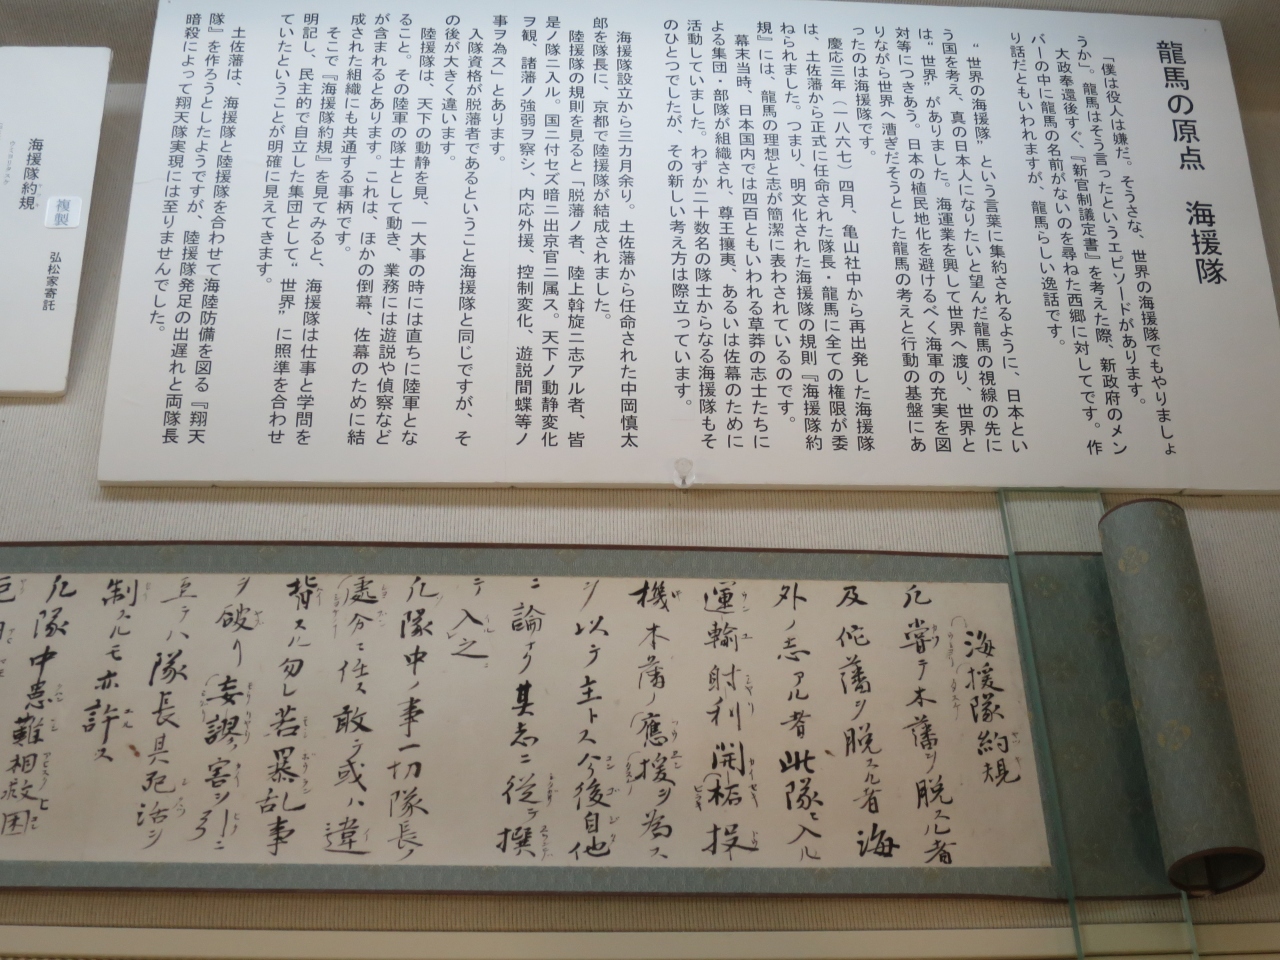 龍馬の原点　海援隊
「僕は役人は嫌だ。そうさな、世界の海援隊でもやりましょ
うか」。龍馬はそう言ったというエピソードがあります。
大政奉還後すぐ、『新官制議定書』を考えた際、新政府のメン
バーの中に龍馬の名前がないのを尋ねた西郷に対してです。作
り話だともいわれますが、龍馬らしい逸話です。
“世界の海援隊”という言葉に集約されるように、日本とい
う国を考え、真の日本人になりたいと望んだ龍馬の視線の先に
は“世界”がありました。海運業を興して世界へ渡り、世界と
対等につきあう。日本の植民地化を避けるべく海軍の充実を図
りながら世界へ漕ぎだそうとした龍馬の考えと行動の基盤にあ
ったのは海援隊です。
慶応三年（一八六七）四月、亀山社中から再出発した海援隊
は、土佐藩から正式に任命された隊長・龍馬に全ての権限が委
ねられました。つまり、明文化された海援隊の規則『海援隊約
規』には、龍馬の理想と志が簡潔に表わされているのです。
幕末当時、日本国内では四百ともいわれる草莽の志士たちに
よる集団・部隊が組織され、尊王攘夷、あるいは佐幕のために
活動していました。わずか二十数名の隊士からなる海援隊もそ
のひとつでしたが、その新しい考え方は際立っています。
海援隊設立から三カ月余り。土佐藩から任命された中岡慎太
郎を隊長に、京都で陸援隊が結成されました。
陸援隊の規則を見ると「脱藩ノ者、陸上斡旋ニ志アル者、皆
是ノ隊ニ入ル。国ニ付セズ暗ニ出京官ニ属ス。天下ノ動静変化
ヲ観、諸藩ノ強弱ヲ察シ、内応外援、控制変化、遊説間蝶等ノ
事ヲ為ス」とあります。
入隊資格が脱藩者であるということ海援隊と同じですが、そ
の後が大きく違います。
陸援隊は、天下の動静を見、一大事の時には直ちに陸軍とな
ること。その陸軍の隊士として動き、業務には遊説や偵察など
が含まれるとあります。これは、ほかの倒幕、佐幕のために結
成された組織にも共通する事柄です。
そこで『海援隊約規』を見てみると、海援隊は仕事と学問を
明記し、民主的で自立した集団として“世界”に照準を合わせ
ていたということが明確に見えてきます。
土佐藩は、海援隊と陸援隊を合わせて海陸防備を図る『翔天
隊』を作ろうとしたようですが、陸援隊発足の出遅れと両隊長
暗殺によって翔天隊実現には至りませんでした。
複製
海援隊約規
弘松家寄託
海援隊約規
凡嘗テ本藩ヲ脱スル者
及佗藩ヲ脱スル者海
外ノ志アル者此隊ニ入ル
運輸射利開柘投
機本藩ノ應援ヲ為ス
ヲ以テ主トス今後自他
ニ論ナク其志ニ従テ撰
テ入之
凡隊中ノ事一切隊長ノ
處分ニ任ス敢テ或ハ違
背スル勿レ若暴乱事
ヲ破リ妄謬害ヲ引ニ
至テハ隊長其死活ヲ
制スルモ亦許ス
凡隊中患難相救困